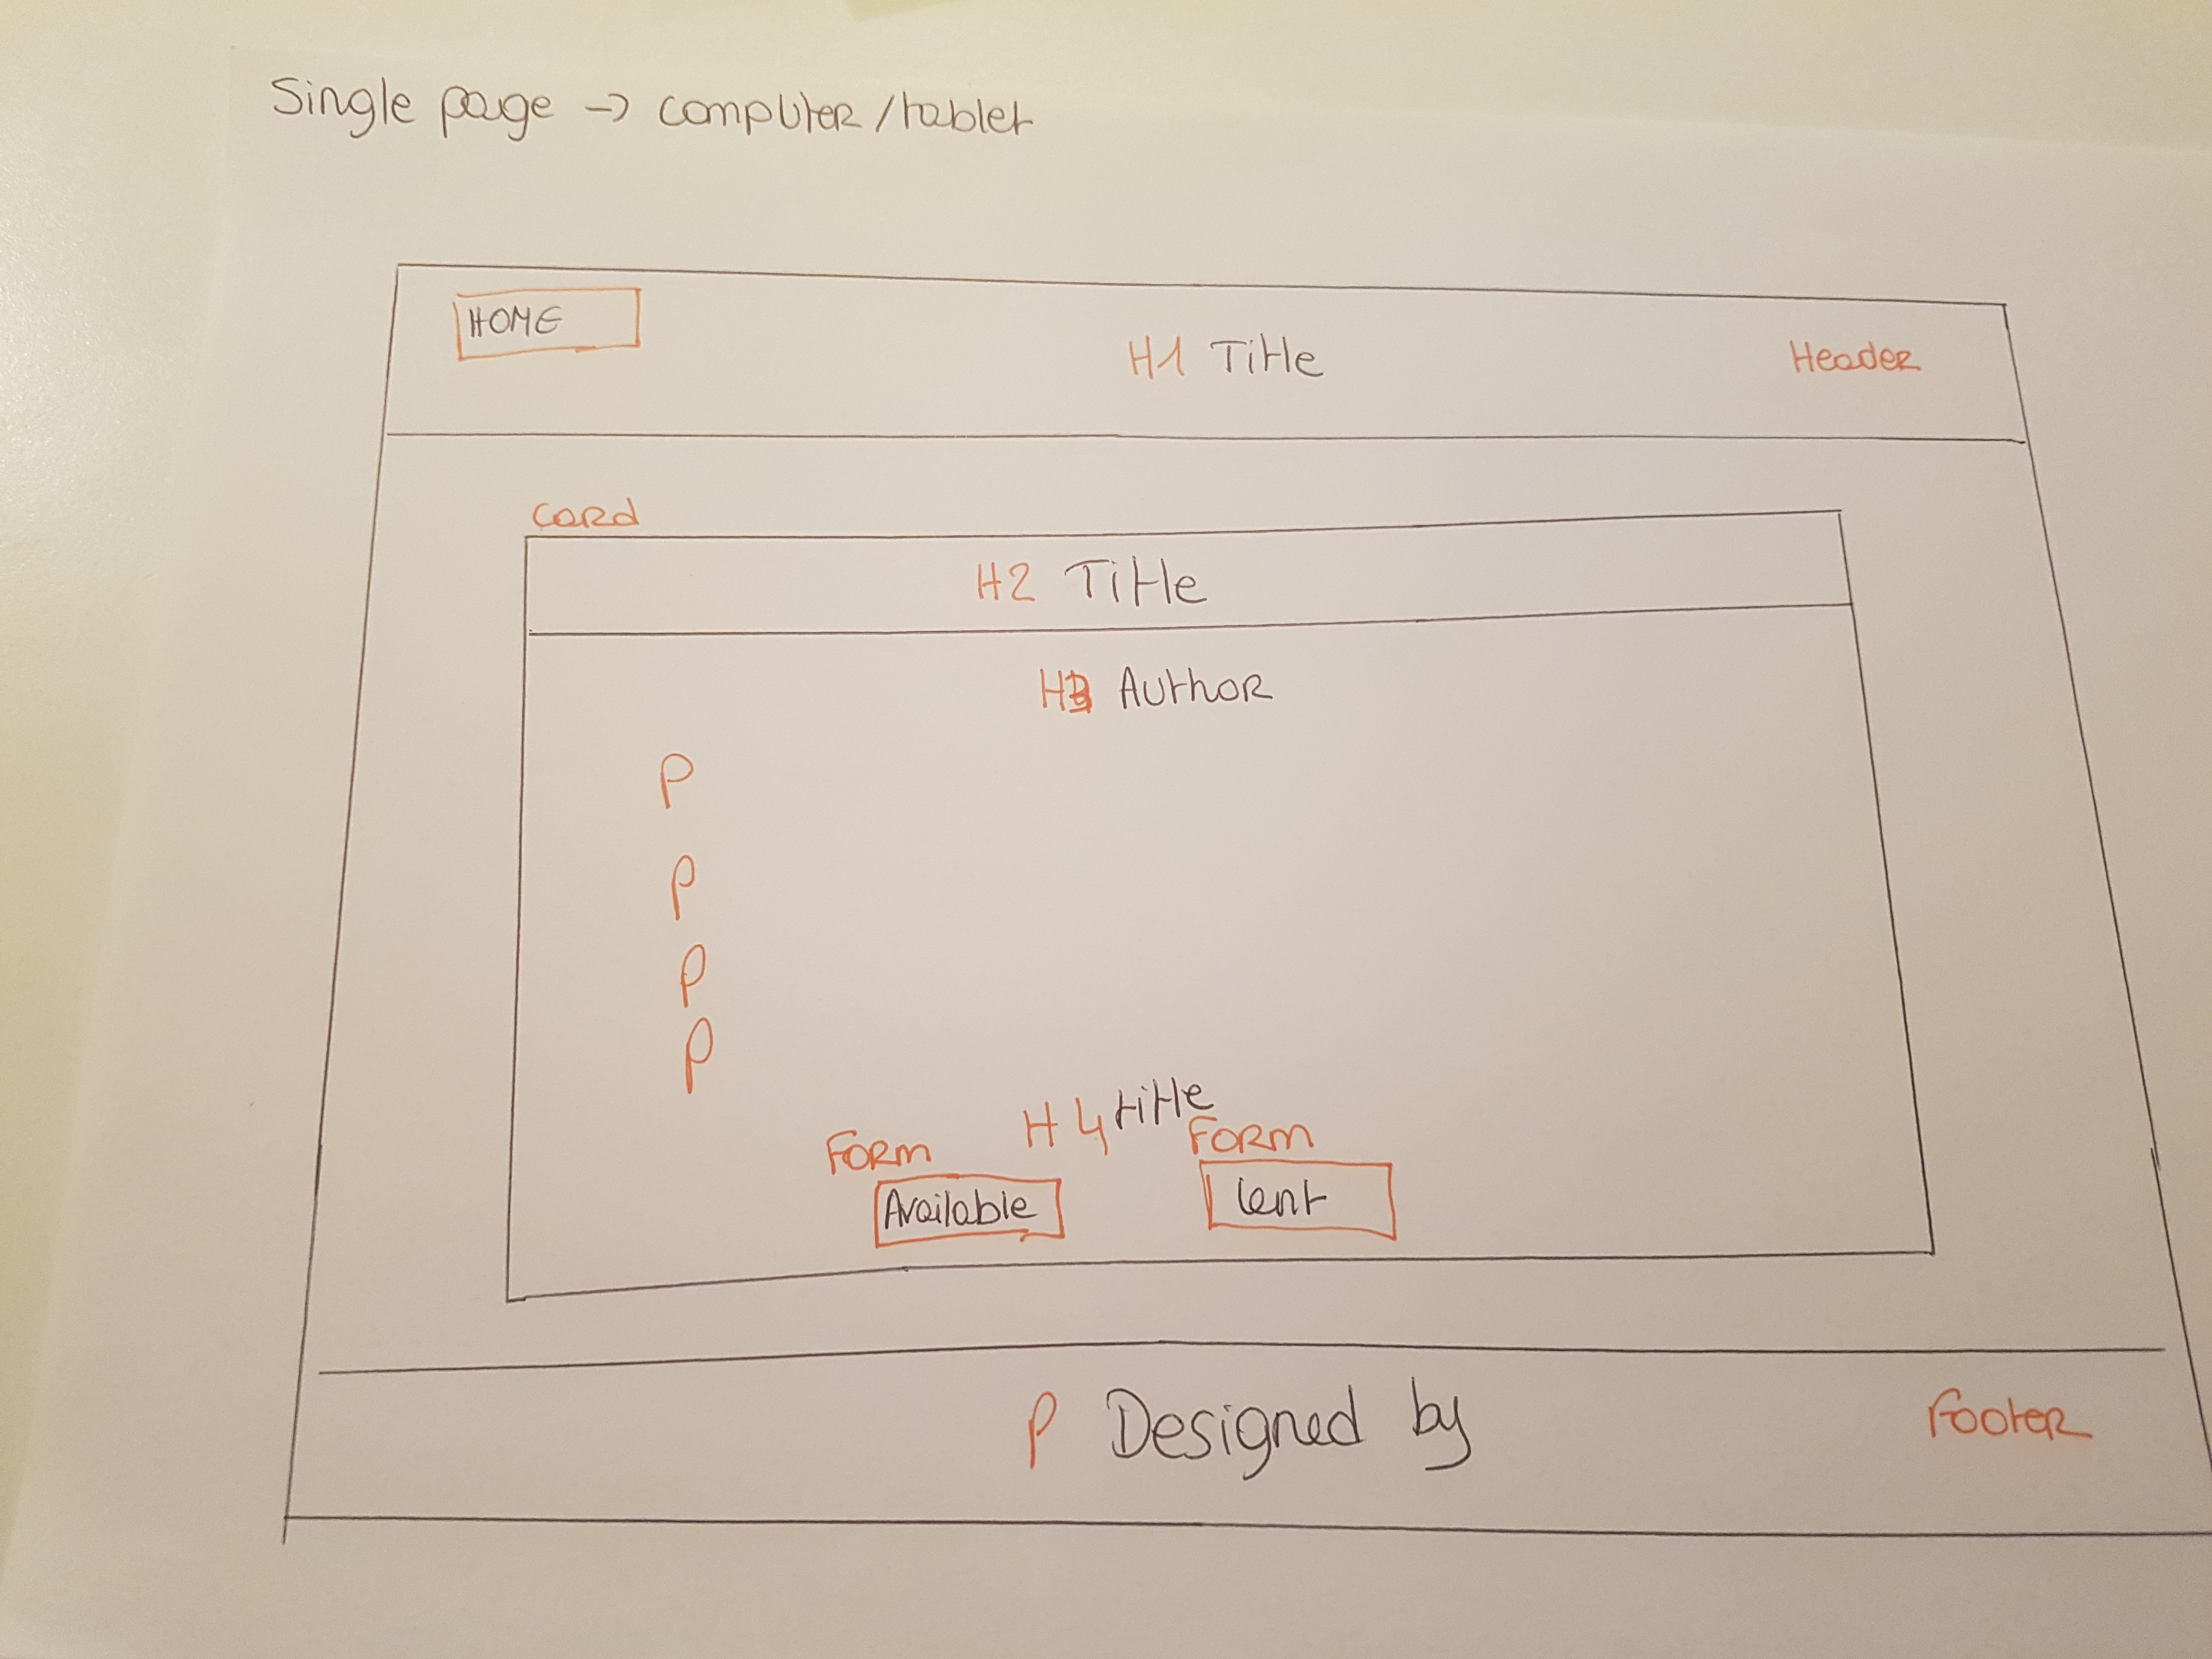 Single page → computer/tablet
HOME
H1 Title
Header
Card
H2 Title
H3 Author
P
P
P
P
H4 title
Form
Form
Available
lent
P Designed by
Footer